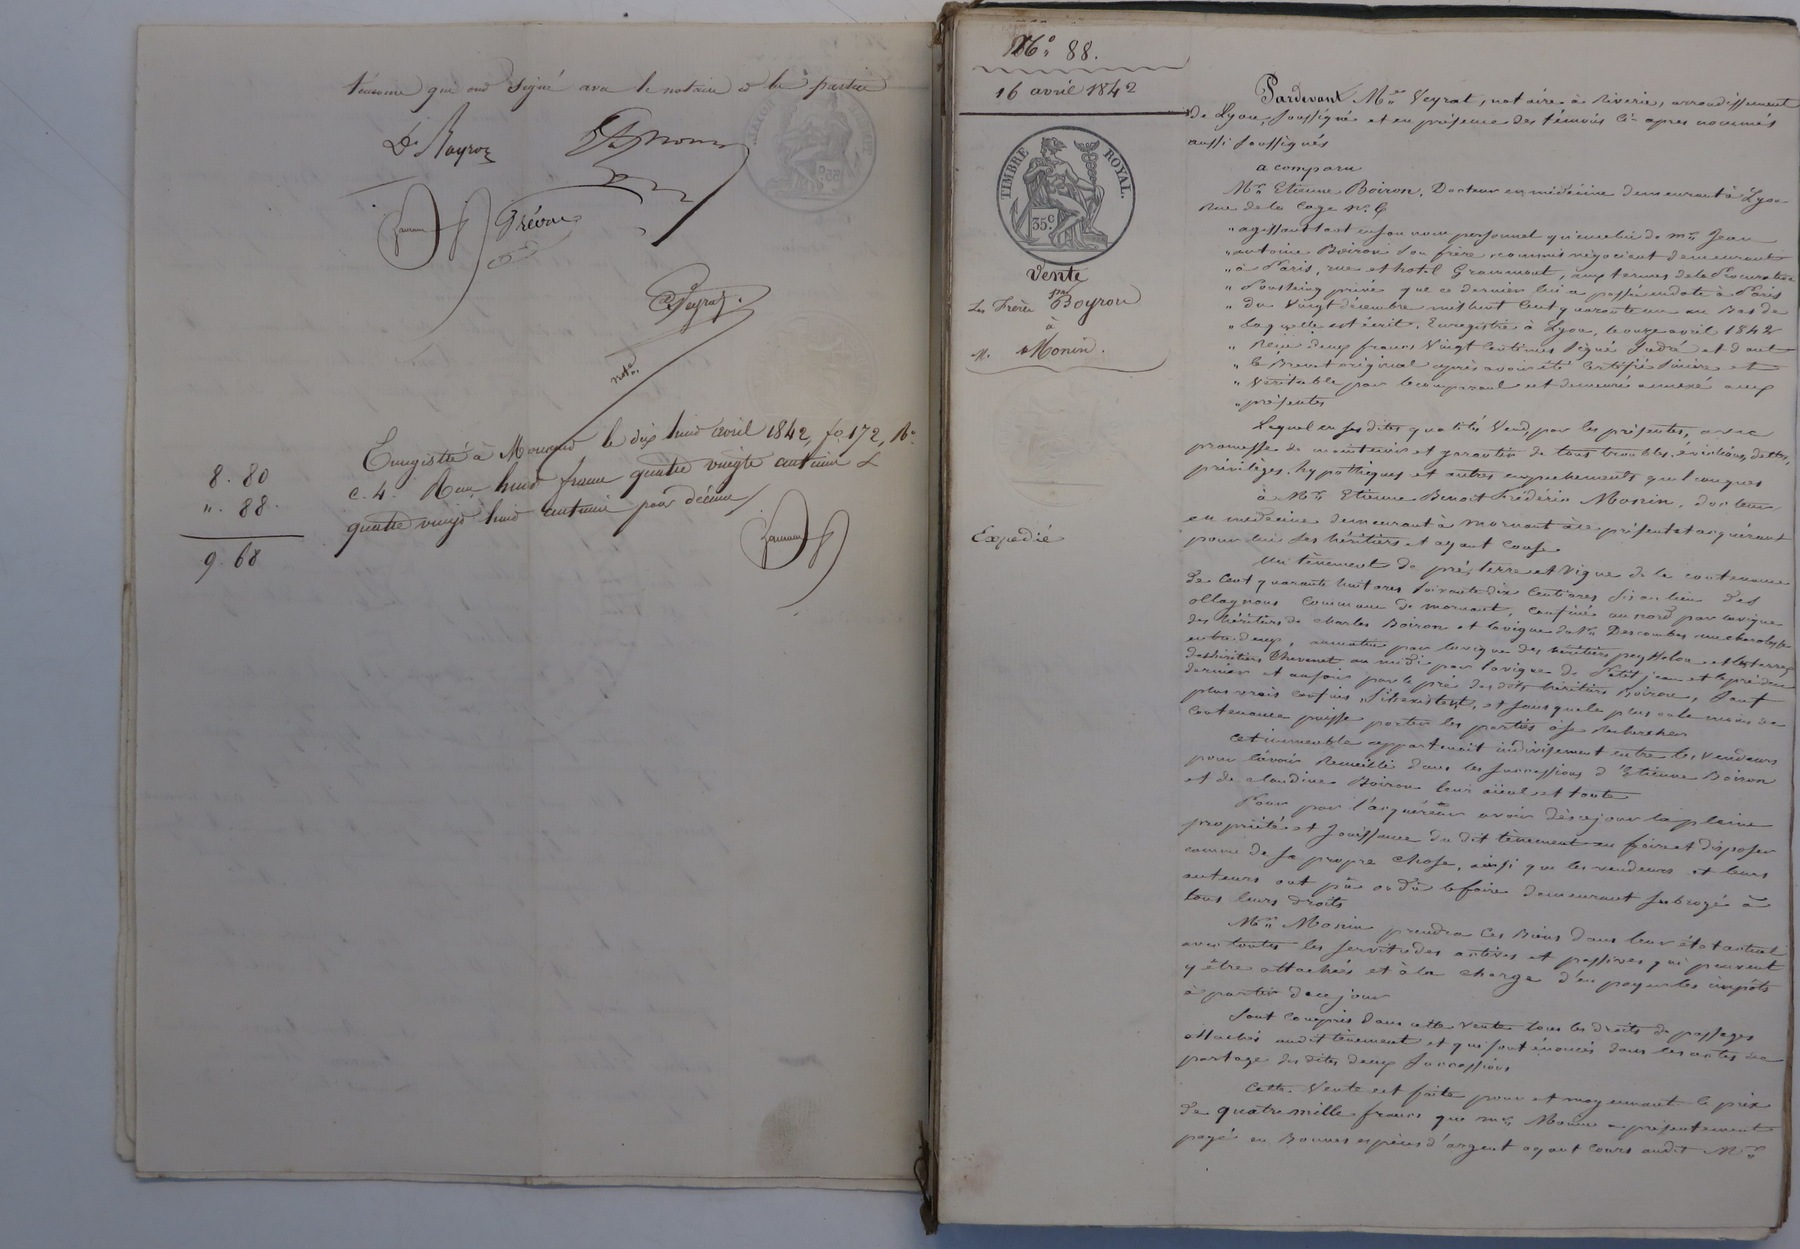 témoins qui ont signé avec le notaire et les parties
Dr Rayroz
Frévou
CVeyrat
note
8. 80
". 88.
9. 68
Enregistré à Mornand le dix huit avril 1842, fo 172, No.
c. 4. Reçu huit francs quatre vingts centimes &
quatre vingt huit centimes pour décime
No. 88.
16 avril 1842
TIMBRE ROYAL.
35 c.
Vente
Les Frères Boyron
à
M. Monin.
Expédié
Pardevant Me. Veyrat, notaire à Riverie, arrondissement
de Lyon, soussigné et en présence des témoins ci-après nommés
aussi soussignés
a comparu
Mr. Etienne Boiron, Docteur en médecine demeurant à Lyon
Rue de la Cage No. 6
" agissant tant en son nom personnel qu'en celui de Mr. Jean
" antoine Boiron son frère, commis négociant demeurant
" à Paris, rue et hotel Grammont, aux termes de la Procuration
" sous seing privé que ce dernier lui a passé en date à Paris
" du vingt décembre mil huit cent quarante un au Bas de
" laquelle est écrit. Enregistré à Lyon, le onze avril 1842
" Reçu deux francs vingt centimes signé et dont
" le Brevet original après avoir été certifié sincère et
" véritable par le comparant est demeuré annexé aux
" présentes
Lequel en ses dites qualités vend, par les présentes, avec
promesse de maintenir et garantir de tous troubles, évictions, dettes,
privilèges, hypothèques et autres empêchements quelconques
à Mr. Etienne Benoit Frédéric Monin, docteur
en médecine demeurant à mornant à ce présent et acquérant
pour lui ses héritiers et ayant cause
Un tènement de pré, terre et vigne de la contenance
de cent quarante huit ares soixante dix centiares sis au lieu des
ollagnons commune de mornant, confiné au nord par la vigne
des héritiers de Charles Boiron et la vigne du Sr. Descombes
entre deux, au matin par la vigne des héritiers peyssselon et les terres
des héritiers Thevenet au midi par la vigne de Petit jean et le pré de ce
dernier et au soir par le pré des dits héritiers Boiron, sauf
plus vrais confins, s'ils existent, et sans que le plus ou le moins de
contenance puisse porter les parties à se Rechercher
Cet immeuble appartenait indivisément entre les vendeurs
pour l'avoir Recueilli dans les successions d'Etienne Boiron
et de claudine Boiron leurs aïeul et tante
Pour par l'acquéreur avoir dès ce jour la pleine
propriété et Jouissance du dit tènement en faire et disposer
comme de sa propre chose, ainsi que les vendeurs et leurs
auteurs ont pû ou dû le faire demeurant subrogé à
tous leurs droits
Mr. Monin prendra ces Biens dans leur état actuel
avec toutes les servitudes actives et passives qui peuvent
y être attachées et à la charge d'en payer les impôts
à partir de ce jour
Sont compris dans cette vente tous les droits de passages
attachés audit tènement et qui sont énoncés dans les actes de
partage des dites deux successions
Cette vente est faite pour et moyennant le prix
de quatre mille francs que mr. Monin a présentement
payé en Bonnes espèces d'argent ayant cours audit Mr.